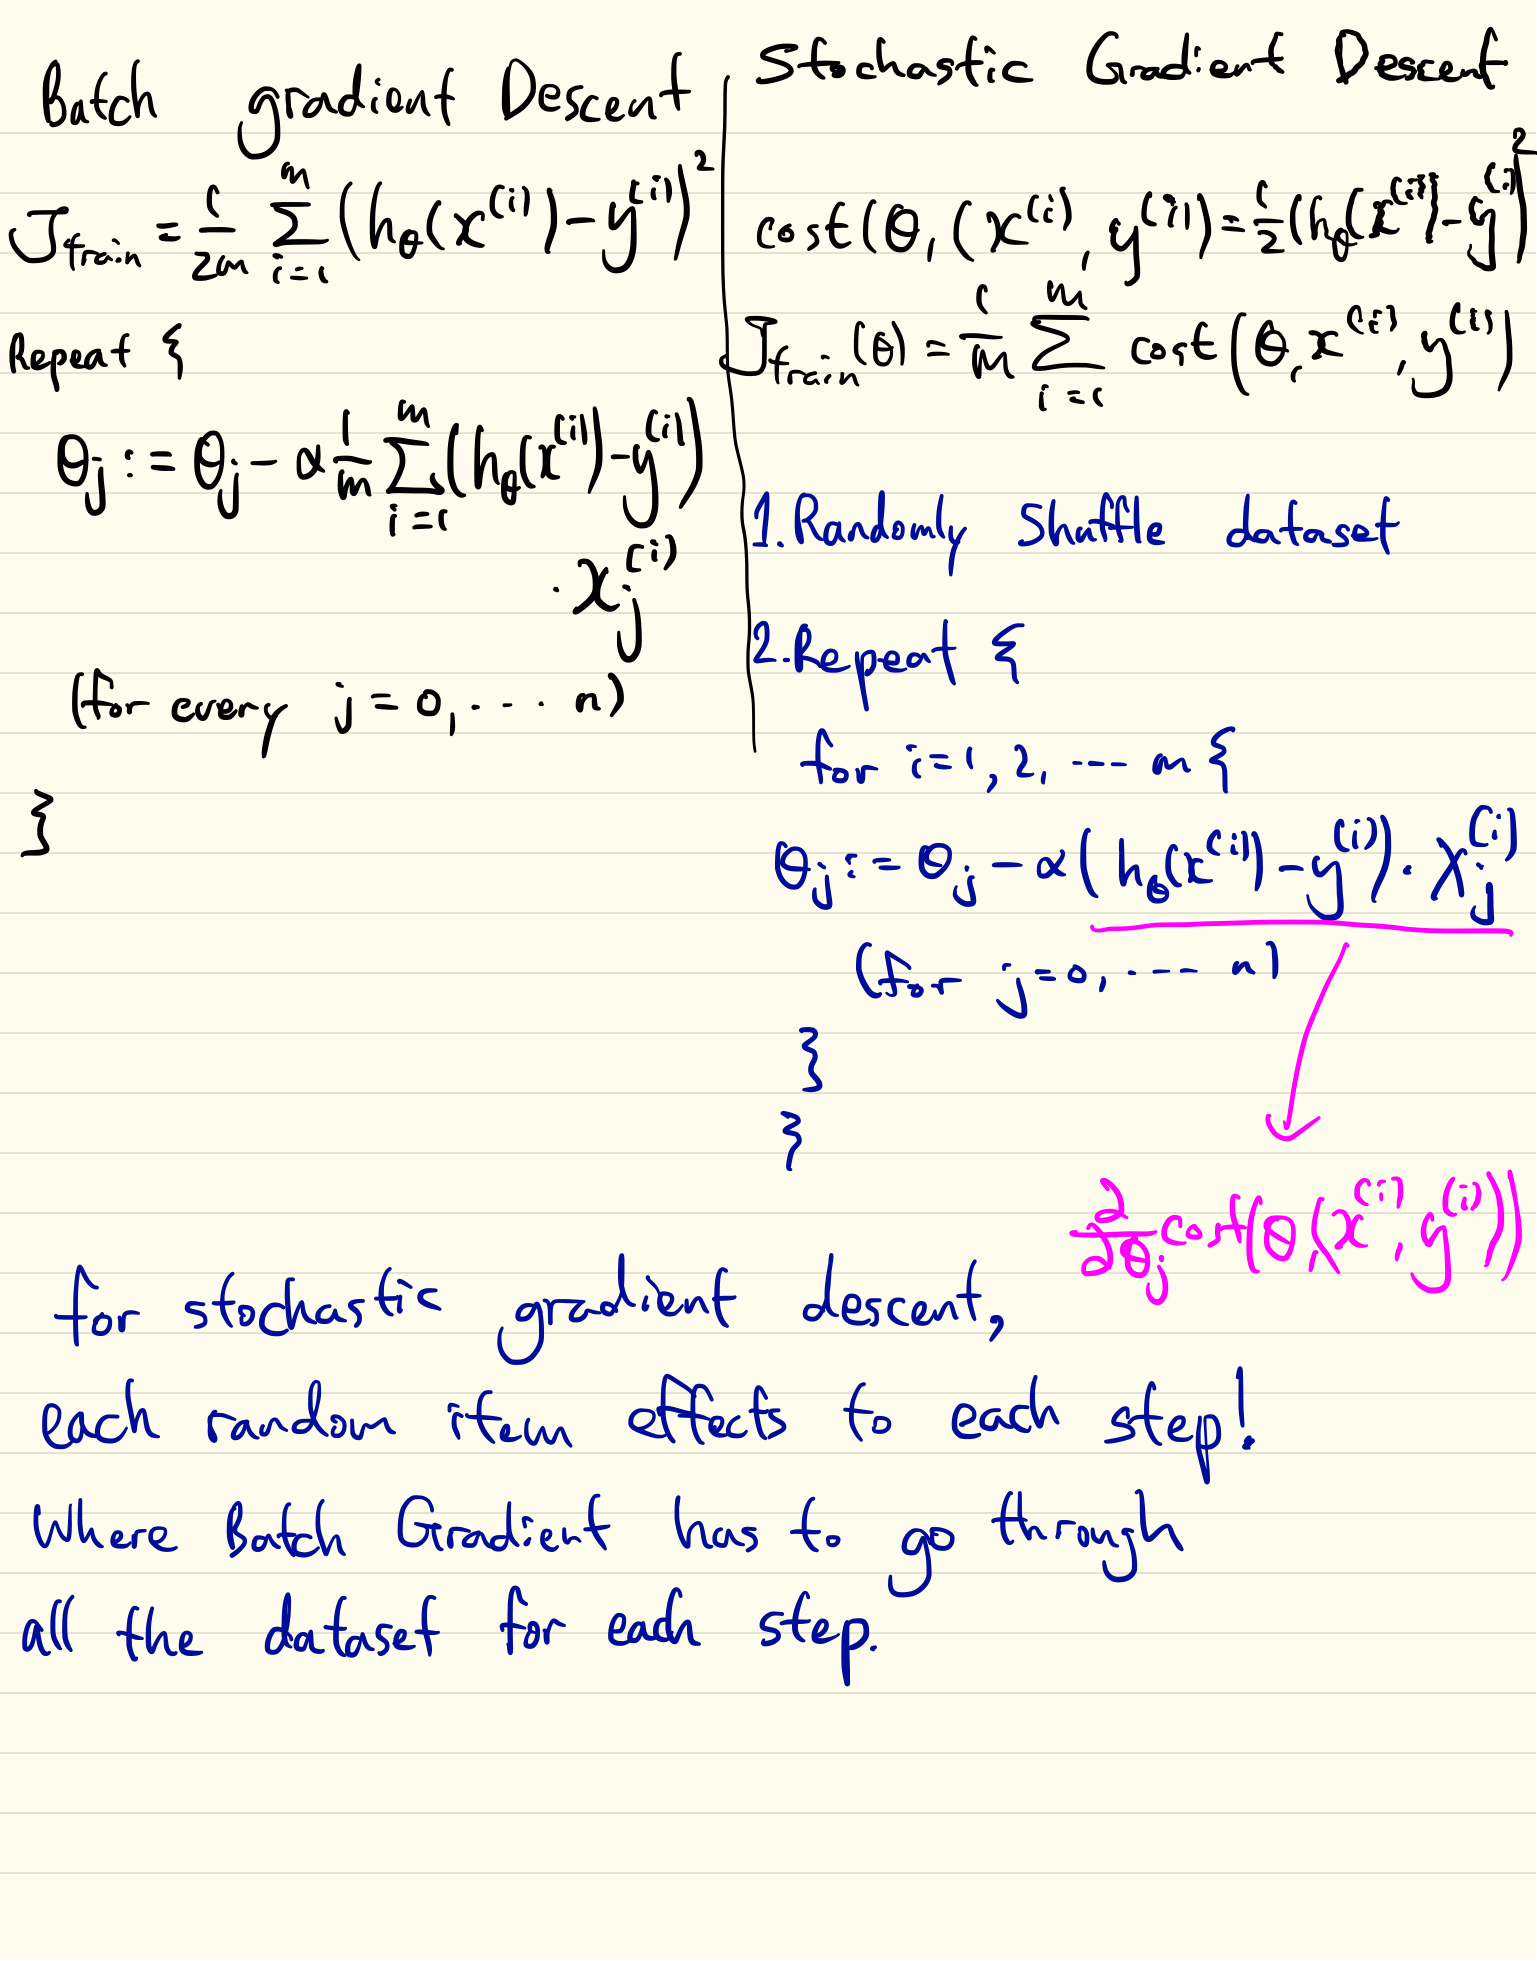 Batch gradient Descent
J_train = 1/2m Σ_{i=1}^{m} (h_θ(x^(i)) - y^(i))^2
Repeat {
θ_j := θ_j - α 1/m Σ_{i=1}^{m} (h_θ(x^(i)) - y^(i))
· x_j^(i)
(for every j = 0, ···· n)
}
Stochastic Gradient Descent
cost(θ, (x^(i), y^(i)) = 1/2 (h_θ(x^(i)) - y^(i))^2
J_train(θ) = 1/m Σ_{i=1}^{m} cost(θ, x^(i), y^(i))
1. Randomly Shuffle dataset
2. Repeat {
for i = 1, 2, ---- m {
θ_j := θ_j - α (h_θ(x^(i)) - y^(i)) · x_j^(i)
(for j = 0, ---- n)
}
}
∂/∂θ_j cost(θ, (x^(i), y^(i)))
for stochastic gradient descent,
each random item effects to each step!
Where Batch Gradient has to go through
all the dataset for each step.